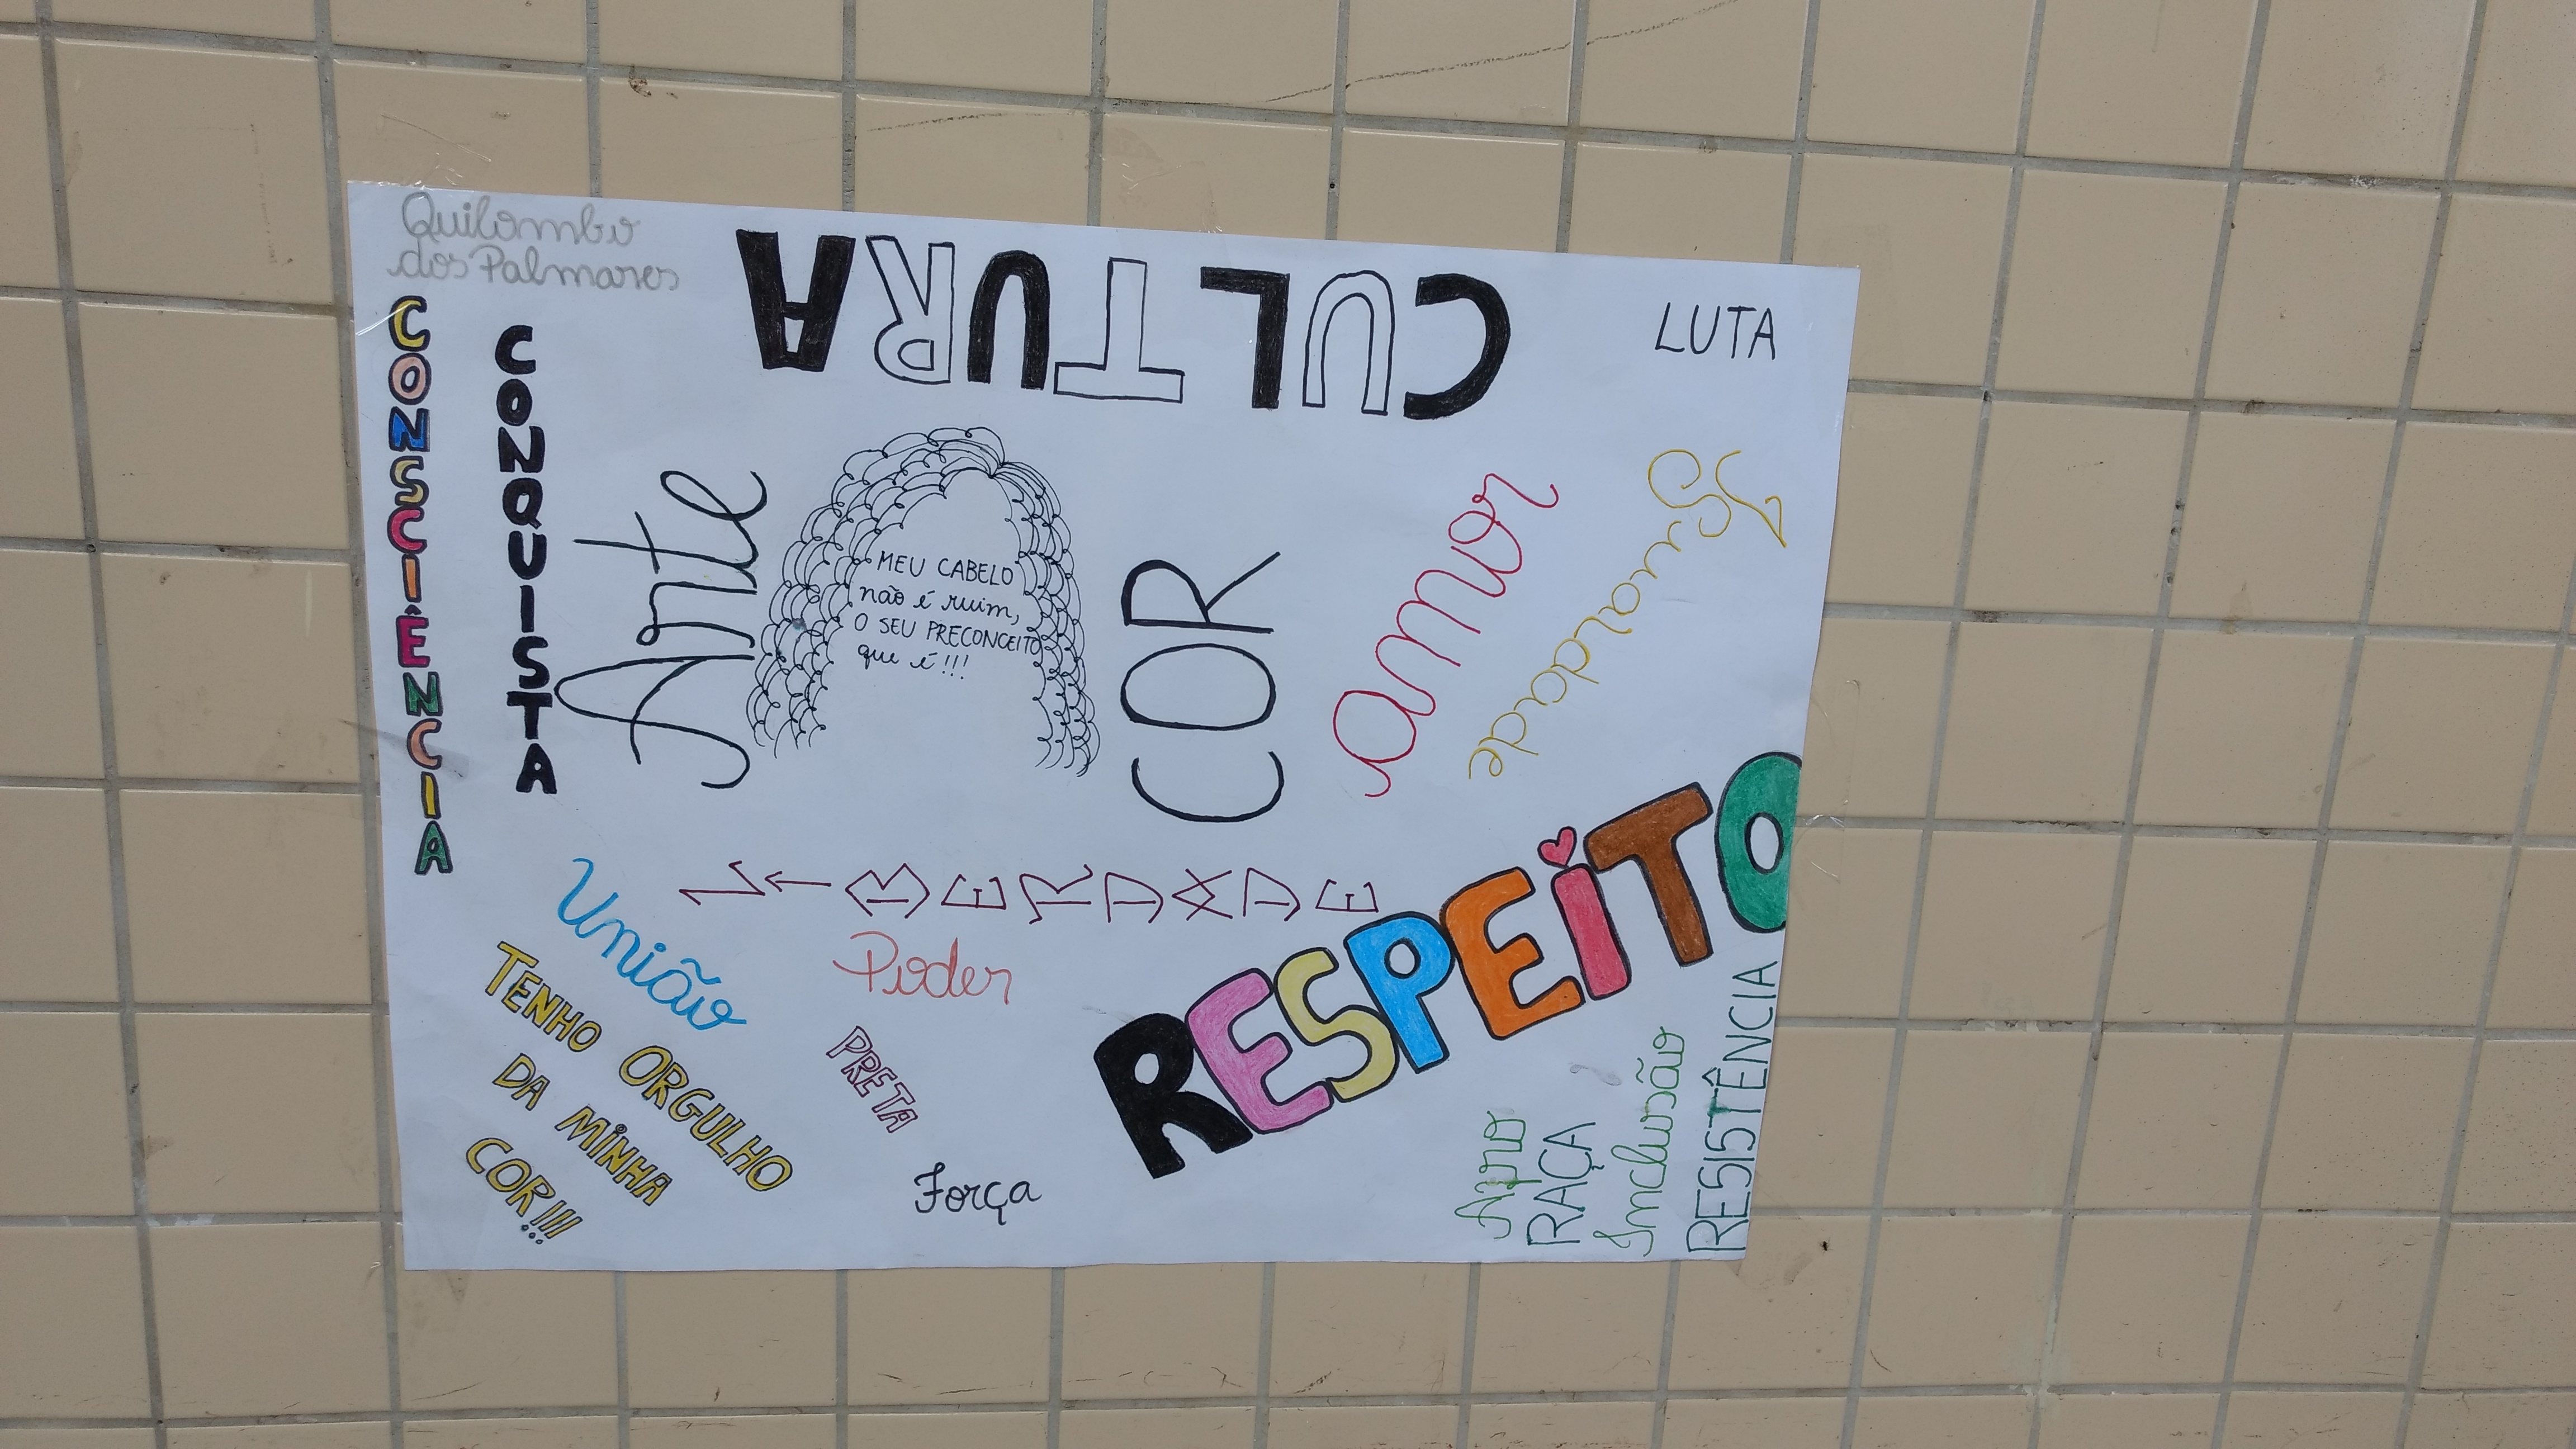 Quilombo
dos Palmares
CULTURA
LUTA
CONSCIÊNCIA
CONQUISTA
Arte
MEU CABELO
não é ruim,
O SEU PRECONCEITO
que é!!!
COR
amor
Igualdade
LIBERDADE
União
Poder
RESPEITO
TENHO ORGULHO
DA MINHA
COR!!!
PRETA
Força
Afro
RAÇA
Inclusão
RESISTÊNCIA